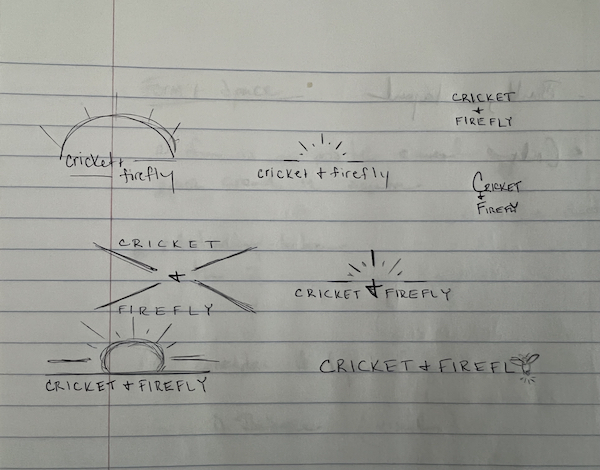 CRICKET
+
FIREFLY
cricket +
firefly
cricket + firefly
CRICKET
+
FIREFLY
CRICKET
+
FIREFLY
CRICKET + FIREFLY
CRICKET + FIREFLY
CRICKET + FIREFLY